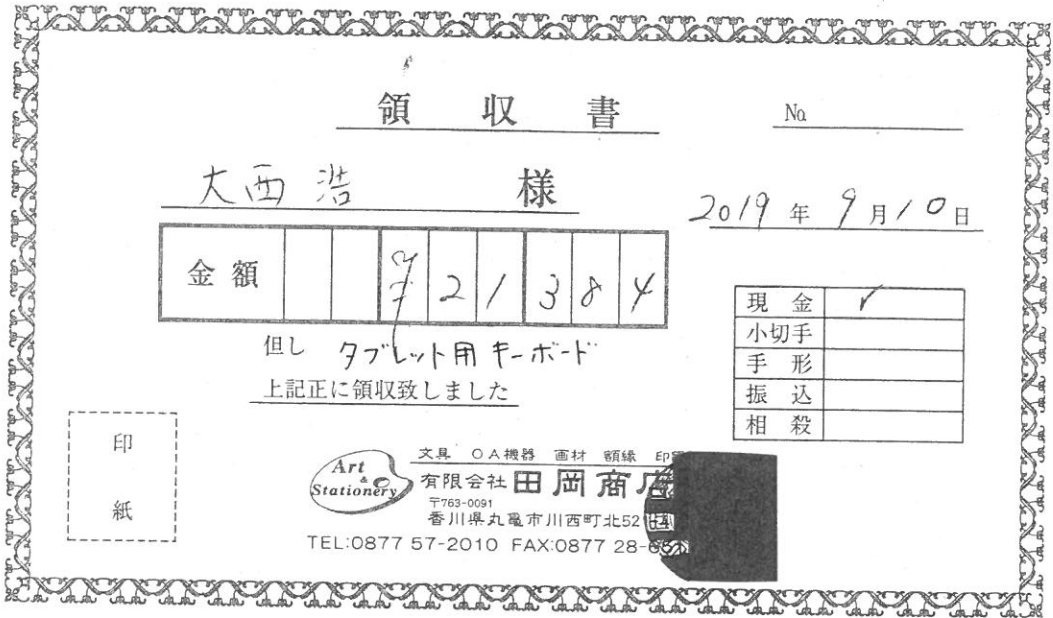 領収書
No.
大西 浩 様
2019年9月10日
金額 ¥21384
現金 ✓
小切手
手形
振込
相殺
但し タブレット用キーボード
上記正に領収致しました
印紙
Art & Stationery
文具 OA機器 画材 額縁
有限会社 田岡商店
〒763-0091
香川県丸亀市川西町北52
TEL:0877 57-2010 FAX:0877 28-